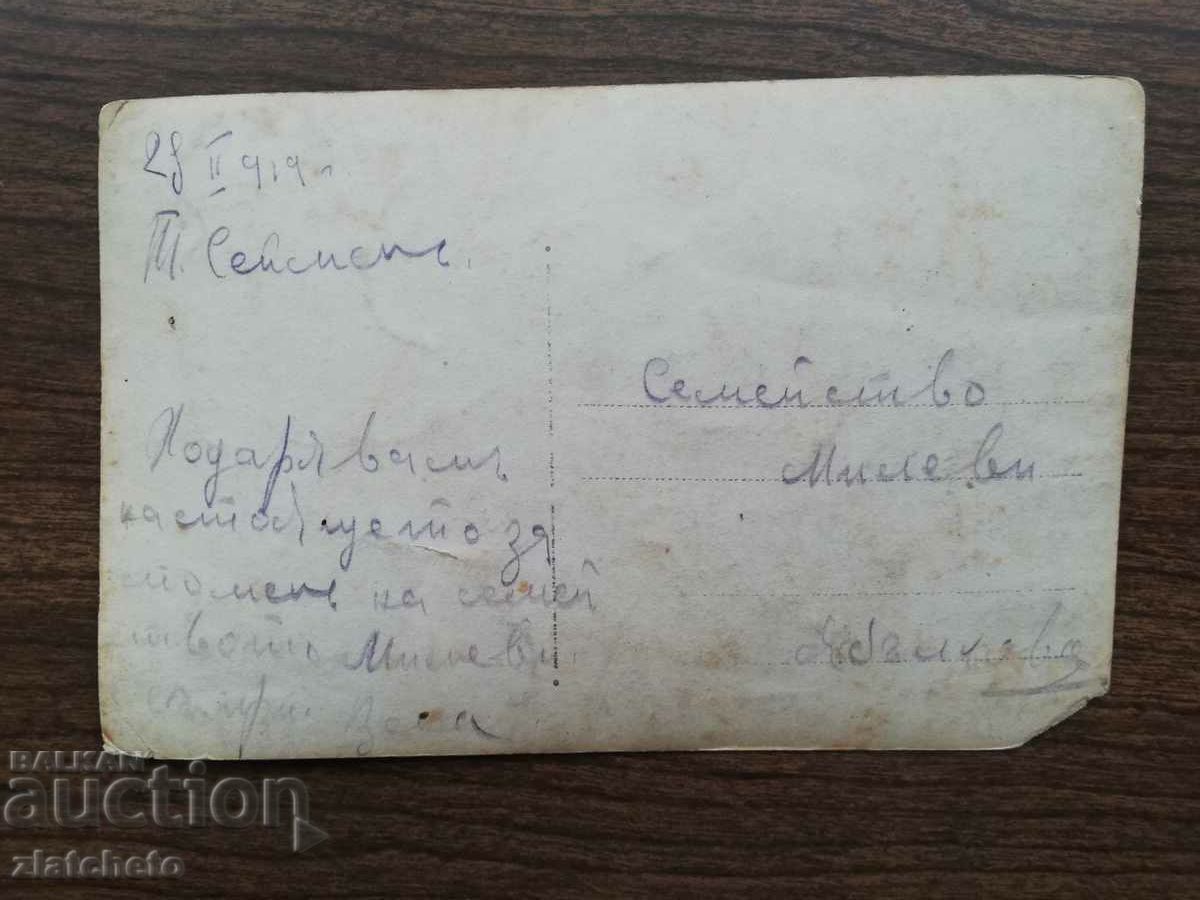 28 II 919 г.
Т. Сейменъ.
Подарявамъ
настоящето за
споменъ на семей
твото Милеви.
Семейство
Милеви
BALKAN
auction
zlatcheto